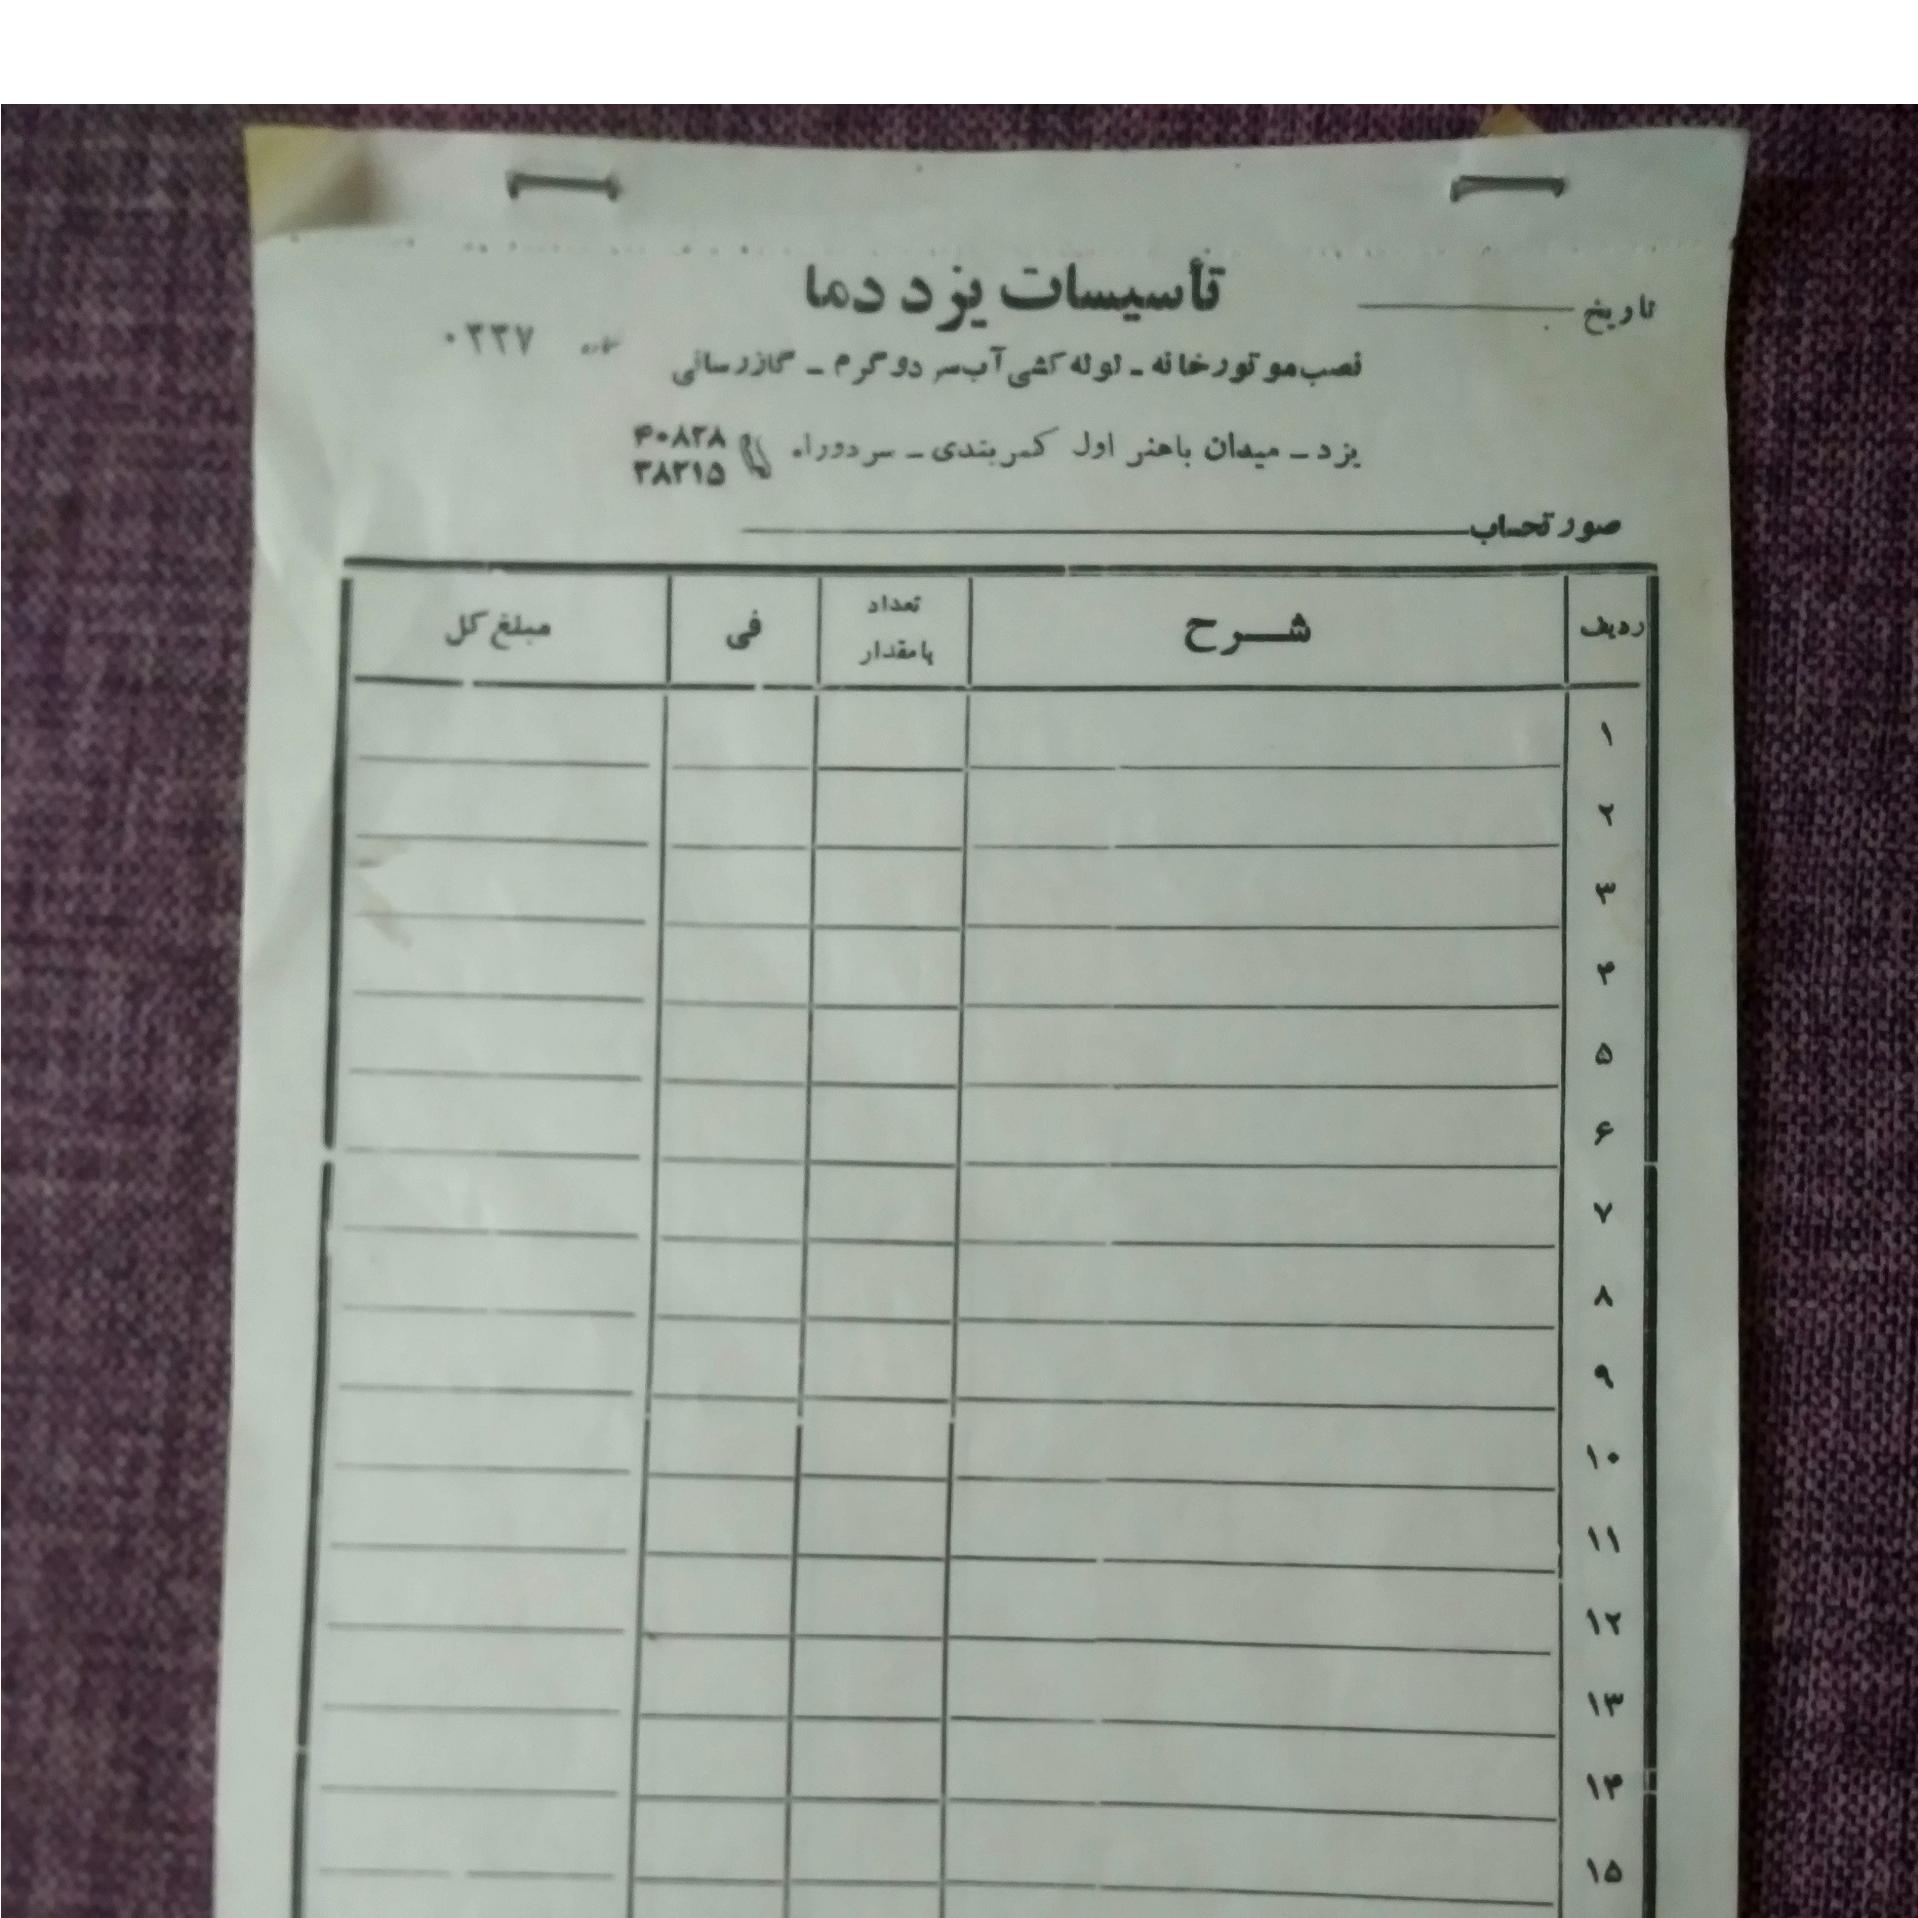 تأسیسات یزد دما
تاریخ
شماره ۰۲۲۷
نصب موتورخانه ـ لوله کشی آب سرد و گرم ـ گازرسانی
یزد ـ میدان باهنر اول کمربندی ـ سر دوراه
۴۰۸۲۸
۳۸۲۱۵
صورتحساب
ردیف شرح تعداد یا مقدار فی مبلغ کل
۱
۲
۳
۴
۵
۶
۷
۸
۹
۱۰
۱۱
۱۲
۱۳
۱۴
۱۵